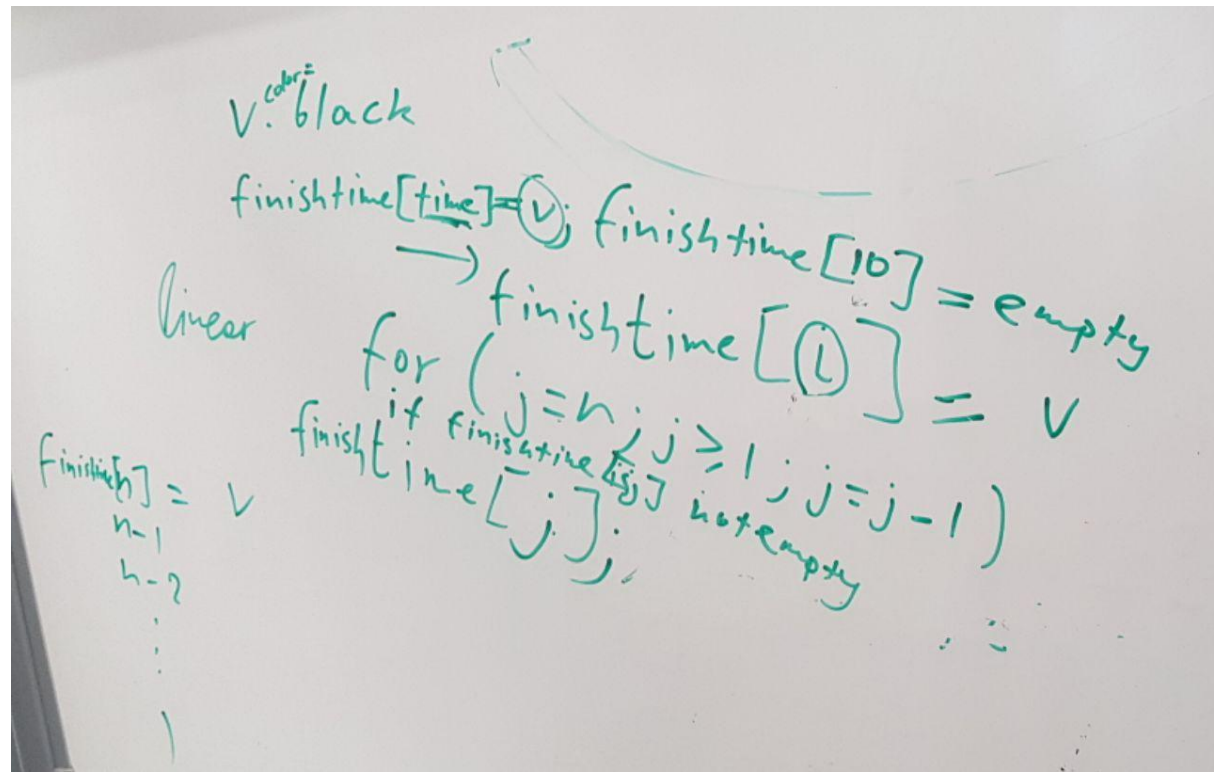 color=
v. black
finishtime[time]=v; finishtime[10] = empty
finishtime[i] = v
linear
for (j=n; j≥1; j=j-1)
if finishtime[j] is not empty
finishtime[j];
finishtime[n] = v
n-1
n-2
⋮
1